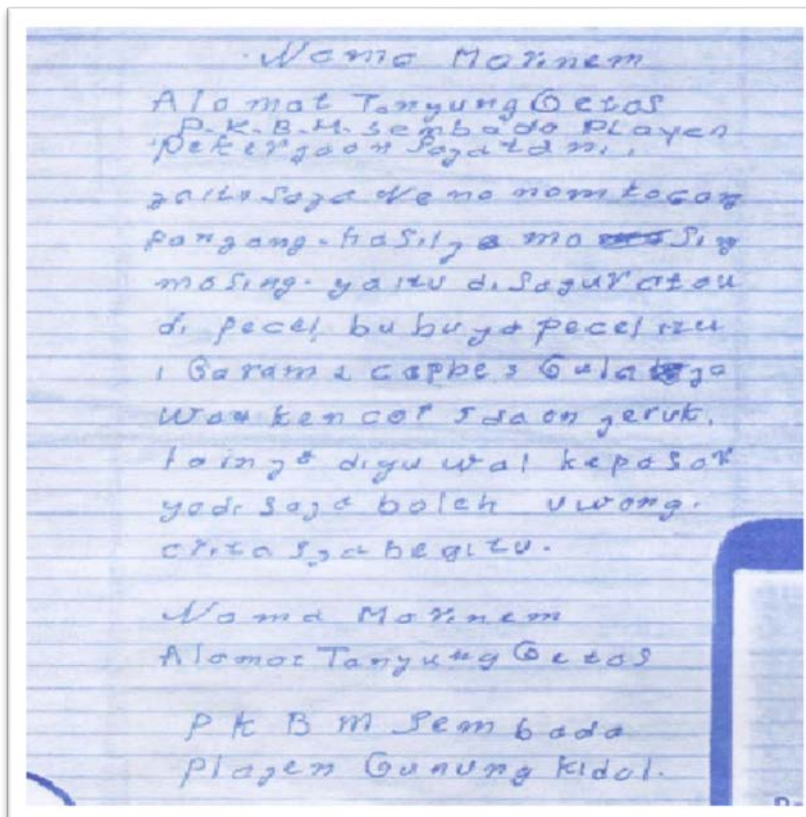 Nama Marinem
Alamat Tanyung Getas
P.K.B.M. Sembada Playen
Pekergaan Saya tani,
yaitu Saya Nenanam kacang
panyang. hasilya ma Sing
masing. yaitu di Sayur atau
di pecel bubuya pecel itu
1 Garam 2 cabbe 3 Gula
kencor 5 daon jeruk.
lainya diyuwal kepasar
yadi Saya boleh uwong.
crita Sya begitu.
Nama Marinem
Alamat Tanyung Getas
PKBM Sembada
Playen Gunung Kidal.